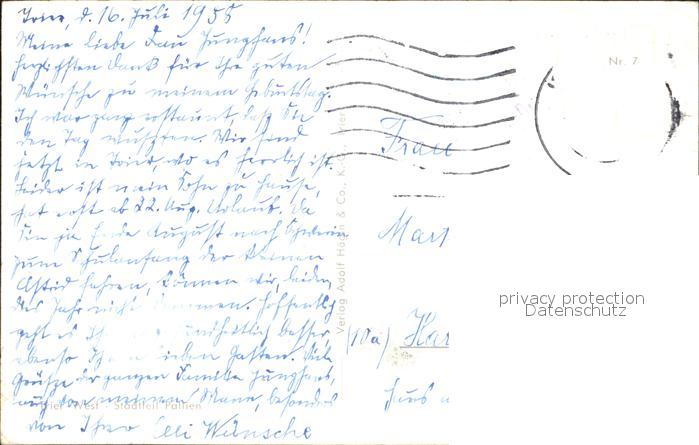 Trier, d. 16. Juli 1958
Meine liebe Frau Junghans!
Herzlichsten Dank für Ihre guten
Wünsche zu meinem Geburtstag.
Ich war ganz erstaunt, daß Sie
den Tag wußten. Wir sind
jetzt in Trier, wo es herrlich ist.
Leider ist mein Sohn zu Hause,
hat erst ab 22. Aug. Urlaub. Da
Sie ja Ende August nach Schwerin
zum Schulanfang der kleinen
Astrid fahren, können wir leider
des Jahr nicht kommen. Hoffentlich
geht es Ihnen gesundheitlich besser,
ebenso Ihrem lieben Gatten. Viele
Grüße der ganzen Familie Junghans,
auch von meinem Manne, besonders
von Ihrer Elli Wünsche
Trier-West - Stadtteil Pallien
Verlag Adolf Hagen & Co., K.
Nr. 7
Frau
Mart
(10a) Har
Hans
privacy protection
Datenschutz